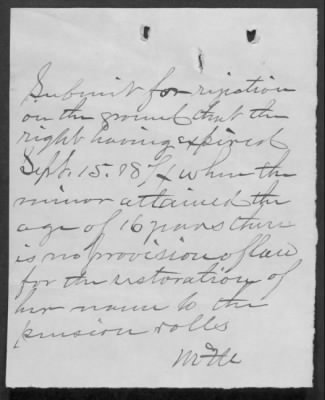 Submit for rejection
on the ground that the
right having expired
Sept. 15. when the
minor attained the
age of 16 years there
is no provision of law
for the restoration of
her name to the
pension rolls